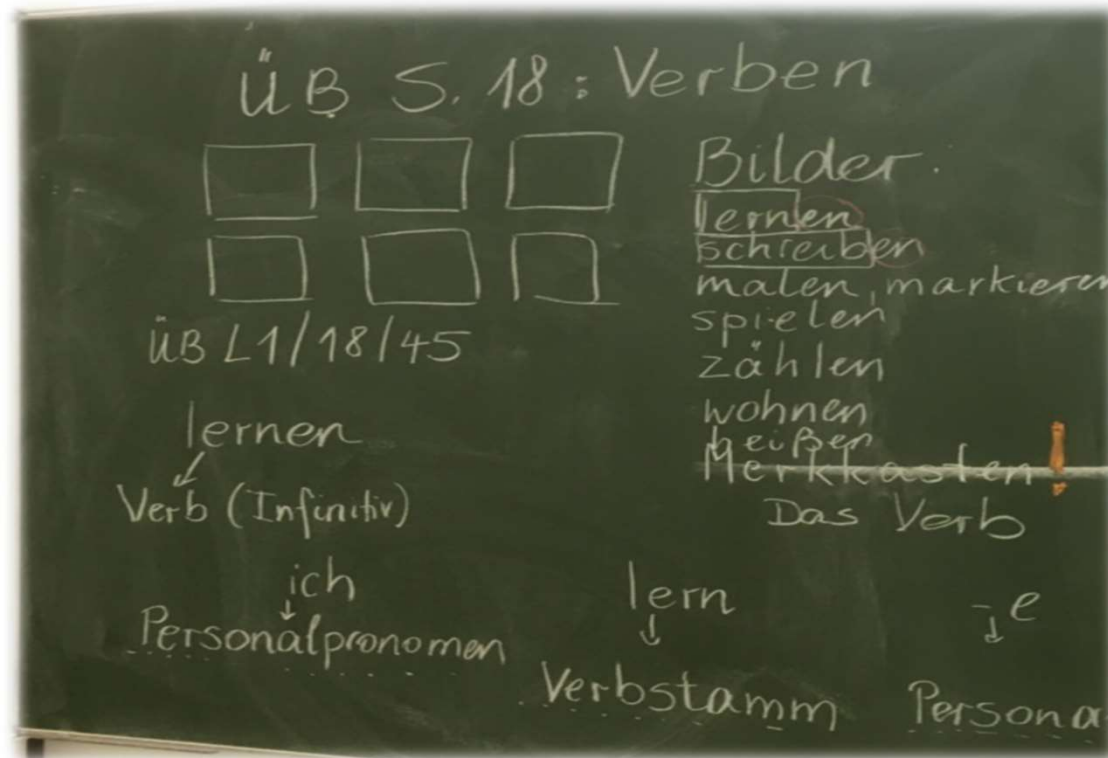 ÜB S. 18 : Verben
Bilder
lernen
schreiben
malen, markieren
spielen
zählen
wohnen
heißen
ÜB L1/18/45
lernen
Verb (Infinitiv)
Merkkasten !
Das Verb
ich lern -e
Personalpronomen Verbstamm Persona